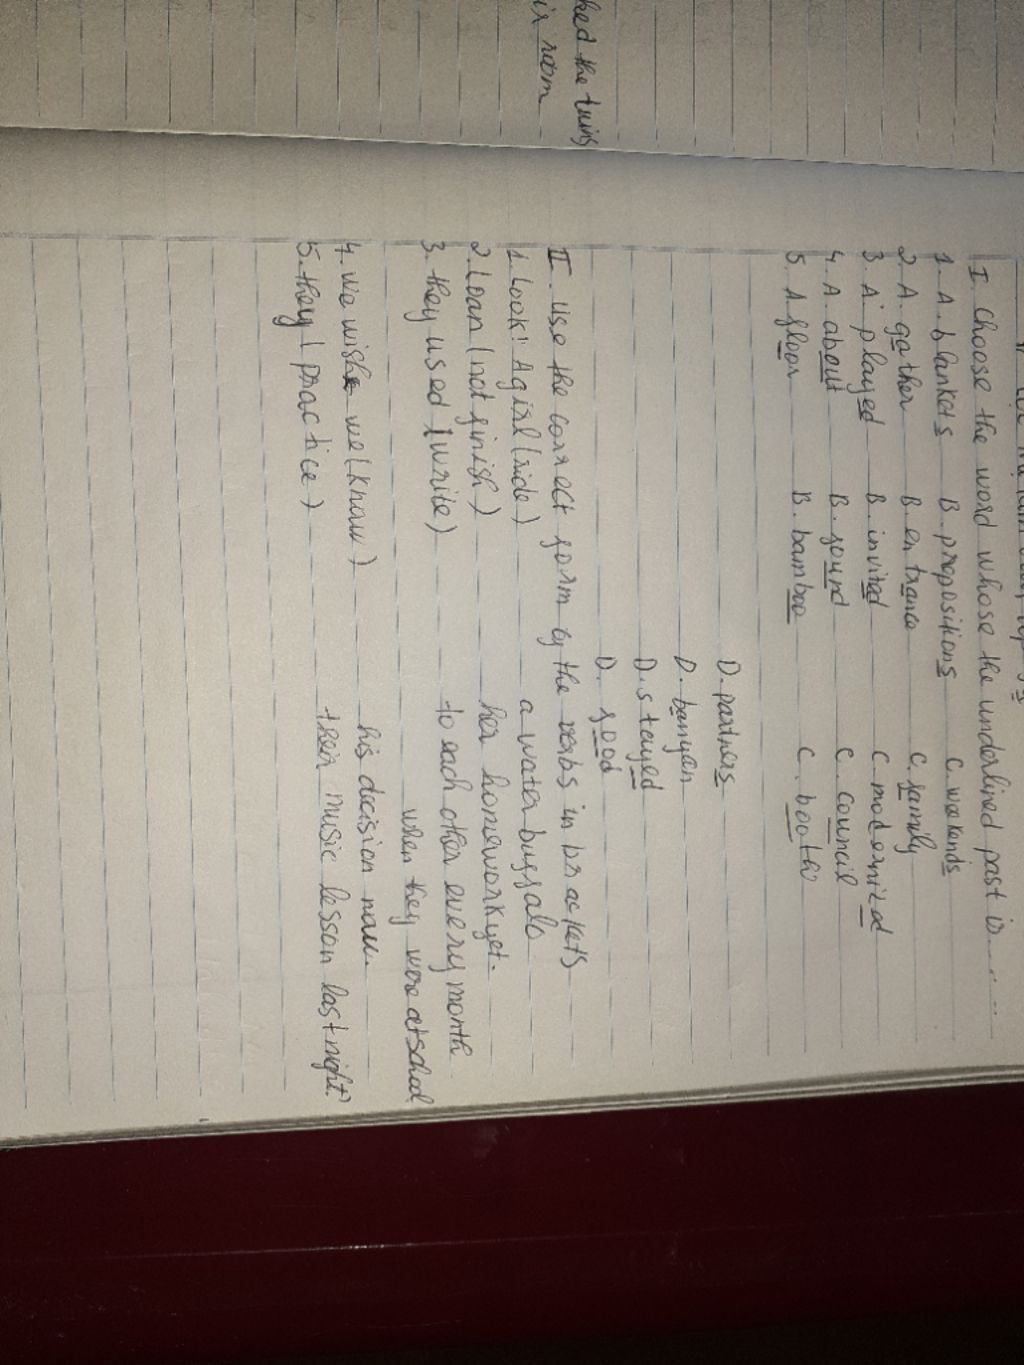 ked the twins
ir room
I. Choose the word whose the underlined past is......
1. A. blankets B. propositions C. weekends
2. A. gather B. entrance C. family
3. A. played B. invited C. modernized
4. A. about B. found C. council
5. A. floor B. bamboo C. booths
D. partners
D. banyan
D. stayed
D. food
II. Use the correct form of the verbs in brackets
1. Look! A girl (ride) a water buffalo
2. Loan (not finish) her homework yet.
3. they used (write) to each other every month
when they were at school
4. we wish we (know) his decision now.
5. they (practice) their music lesson last night?